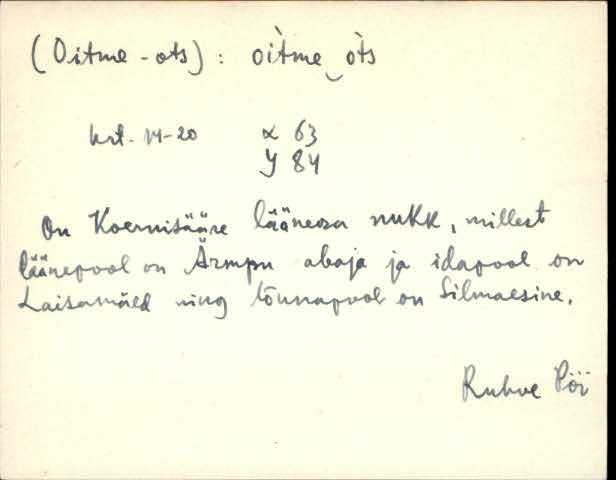 (Oitme-ots) : oi̇̀tme‿ òts
krt. M-20 x 63
y 84
On Koernisääre lääneosa nukk, millest
läänepool on Ärmpu abaja ja idapool on
Laisamäed ning lõunapool on Silmaesine.
Ruhve Pöi